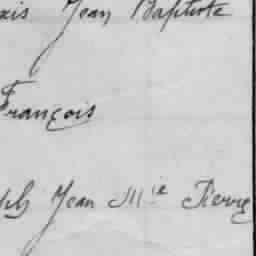 Jean Baptiste
François
Jean Mie Pierre